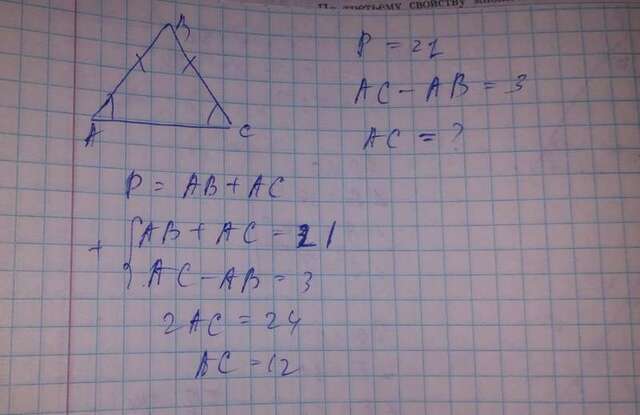 По третьему свойству
B
A
C
P = 21
AC - AB = 3
AC = ?
P = AB + AC
+ { AB + AC = 21
AC - AB = 3
2AC = 24
AC = 12